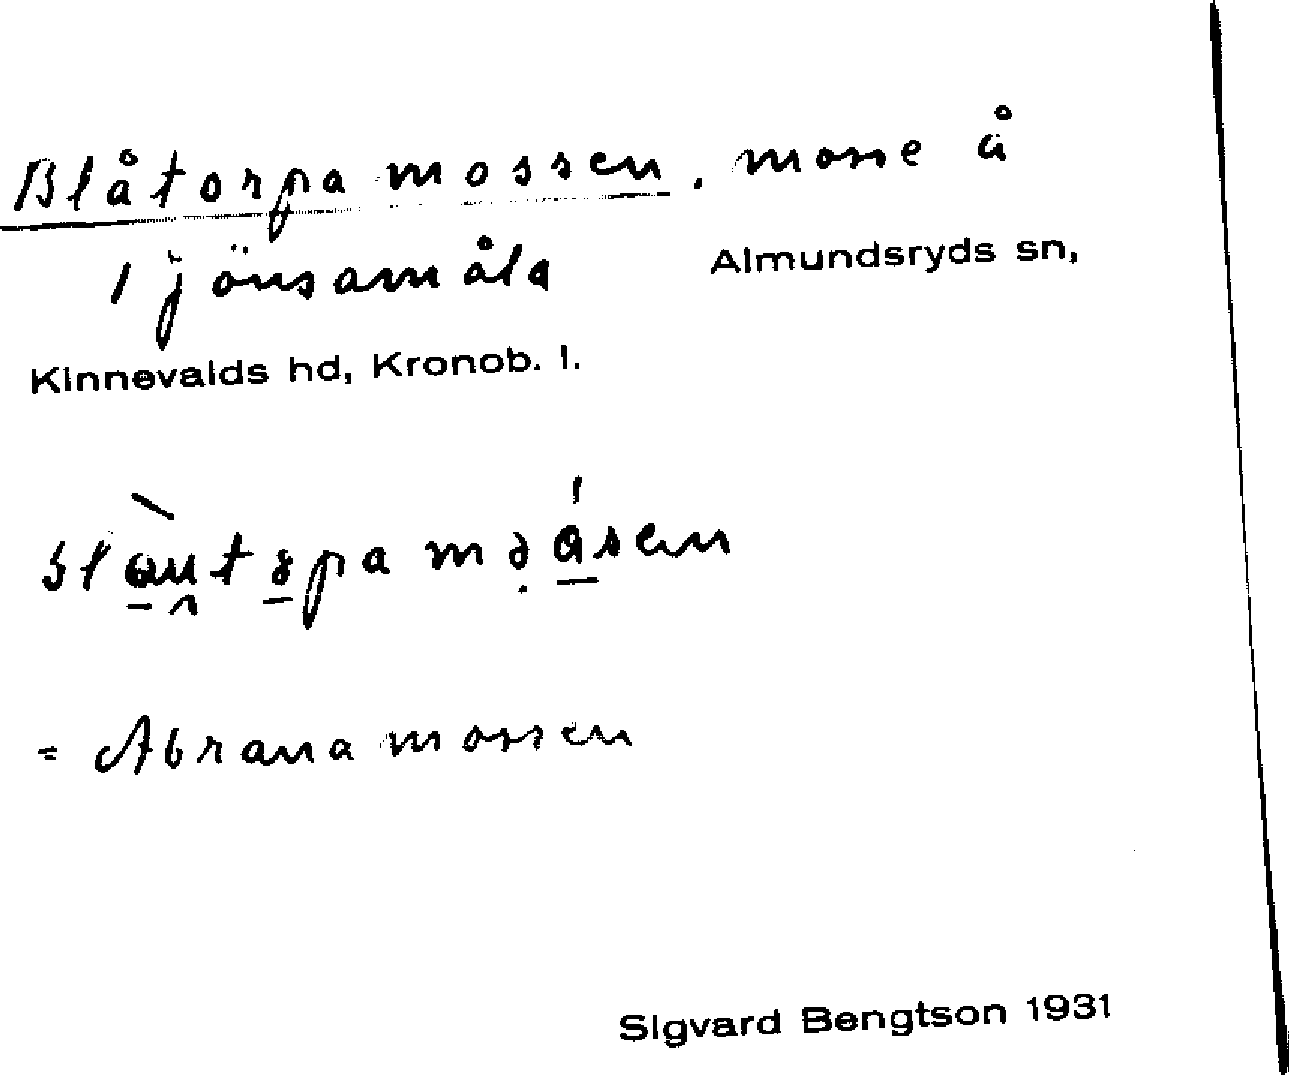 Blåtorpa mossen, mosse å
1 jönsamåla Almundsryds sn,
Kinnevalds hd, Kronob. l.
= Abrana mossen
Sigvard Bengtson 1931